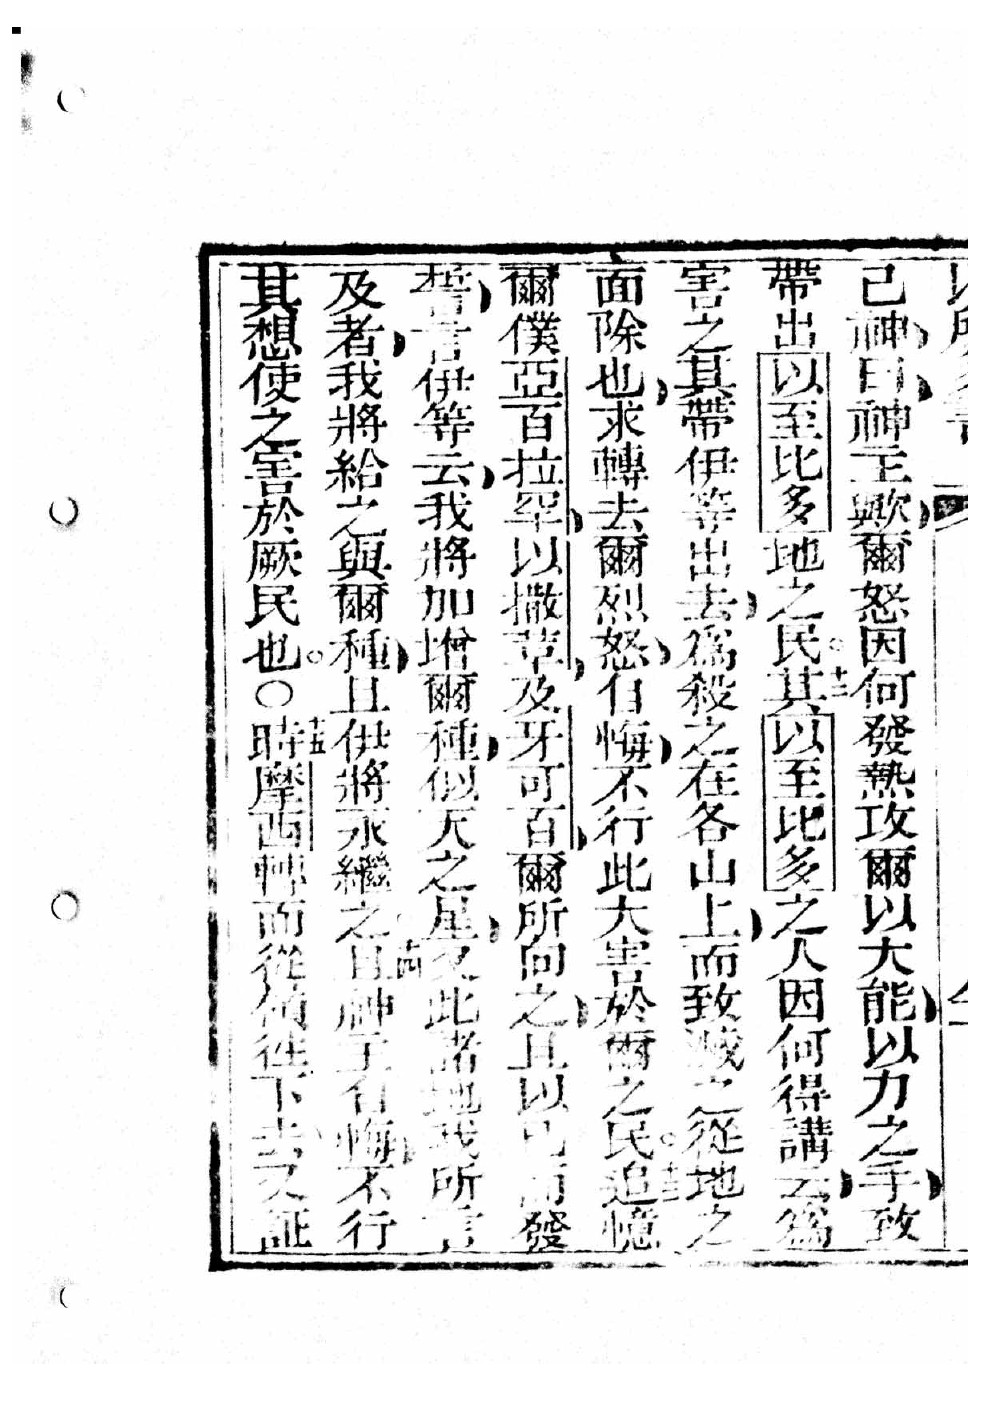 己神曰神王歟爾怒因何發熱攻爾以大能以力之手致
帶出以至比多地之民。十二其以至比多之人因何得講云爲
害之其帶伊等出去爲殺之在各山上而致滅之從地之
面除也求轉去爾烈怒自悔不行此大害於爾之民。十三追憶
爾僕亞百拉罕以撒革及牙可百爾所向之且以己而發
誓言伊等云我將加增爾種似天之星又此諸地我所言
及者我將給之與爾種且伊將永繼之。十四且神主自悔不行
其想使之害於厥民也。〇十五時摩西轉而從嶺往下去又証